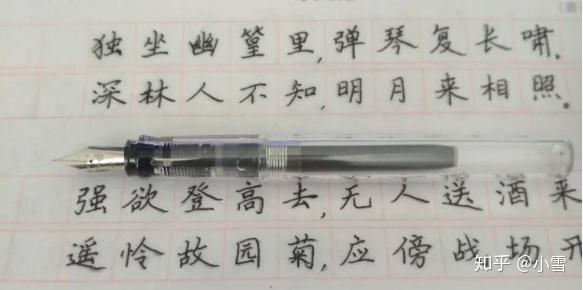 独坐幽篁里,弹琴复长啸.
深林人不知,明月来相照。
强欲登高去,无人送酒来
遥怜故园菊,应傍战场开
知乎 @小雪